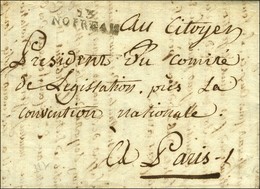 Au Citoyen
NOFREAM
President du Comité
de Legislation, près La
Convention nationale.
A Paris